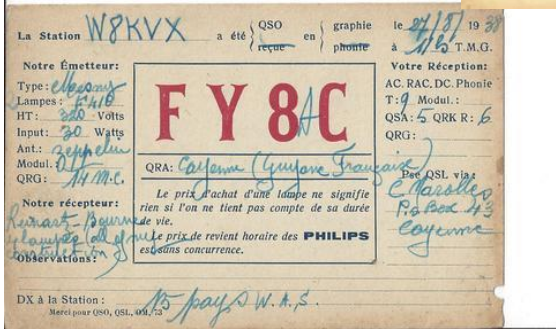 La Station W8KVX a été { QSO reçue en { graphie phonie le 27/8/1938
à 1125 T.M.G.
Notre Émetteur:
Type: Mesny
Lampes: F410
HT: 320 Volts
Input: 30 Watts
Ant.: Zeppelin
Modul.:
QRG: 14 M.C.
Notre récepteur:
Reinartz-Bourne
4 lampes (all
Observations:
FY8AC
QRA: Cayenne (Guyane Française)
Le prix d'achat d'une lampe ne signifie
rien si l'on ne tient pas compte de sa durée
de vie.
Le prix de revient horaire des PHILIPS
est sans concurrence.
Votre Réception:
AC. RAC. DC. Phonie
T: 9 Modul.:
QSA: 5 QRK R: 6
QRG:
Pse QSL via:
C Marolles
P.o Box 43
Cayenne
DX à la Station: 15 pays W.A.S.
Merci pour QSO, QSL, OM, 73